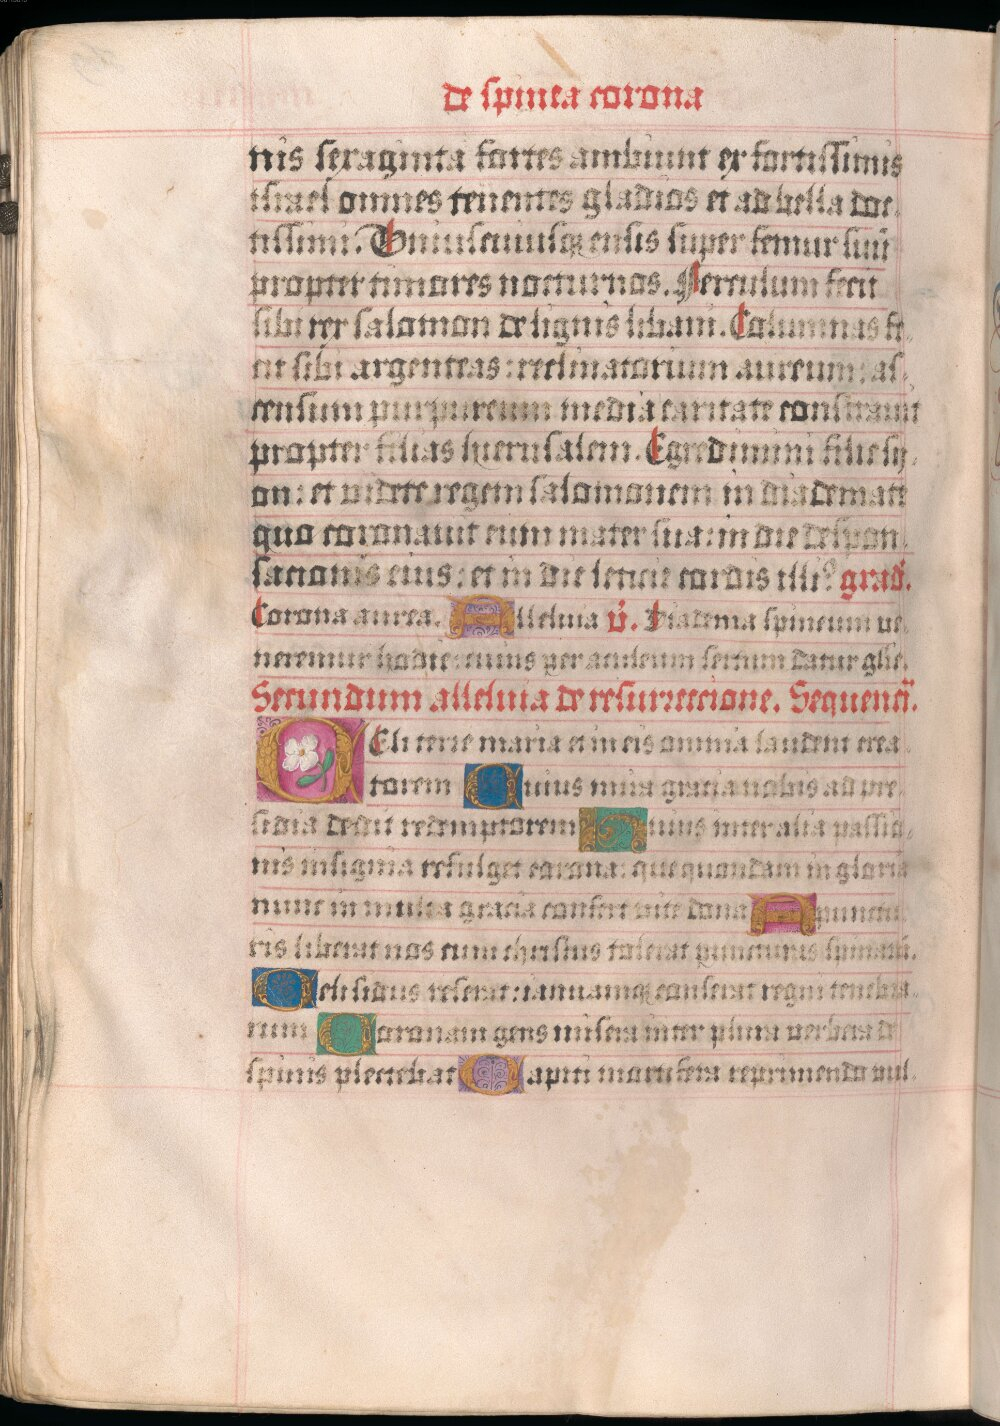 de spinea corona
nis sexaginta fortes ambiunt ex fortissimis
israel omnes tenentes gladios et ad bella doc
tissimi. Uniuscuiusqꝫ ensis super femur suū
propter timores nocturnos. Ferculum fecit
sibi rex salomon de lignis libani. Columnas fe
cit sibi argenteas: reclinatorium aureum: as
censum purpureum media caritate constrauit
propter filias hierusalem. Egredimini filie sy
on: et videte regem salomonem in diademate
quo coronauit eum mater sua: in die despon
sacionis eius: et in die leticie cordis illiꝰ. grad̄.
Corona aurea. Alleluia v̄. Diadema spineum ue
neremur hodie: cuius per aculeum sertum datur glie.
Secundum alleluia de resurreccione. Sequenc̄.
CEli terre maria et in eis omnia laudent crea
torem Cuius mira gracia nobis ad pre
sidia dedit redemptorem Huius inter alia passio
nis insignia refulget corona: que quondam in gloria
nunc in multa gracia confert vite dona A punctu
ris liberat nos cum christus tolerat puncturis spinarū.
Celi sidus reserat: ianuamqꝫ conserat regni tenebra
rum Coronam gens misera inter plura uerbera de
spinis plectebat Capiti mortifera reprimendo vul